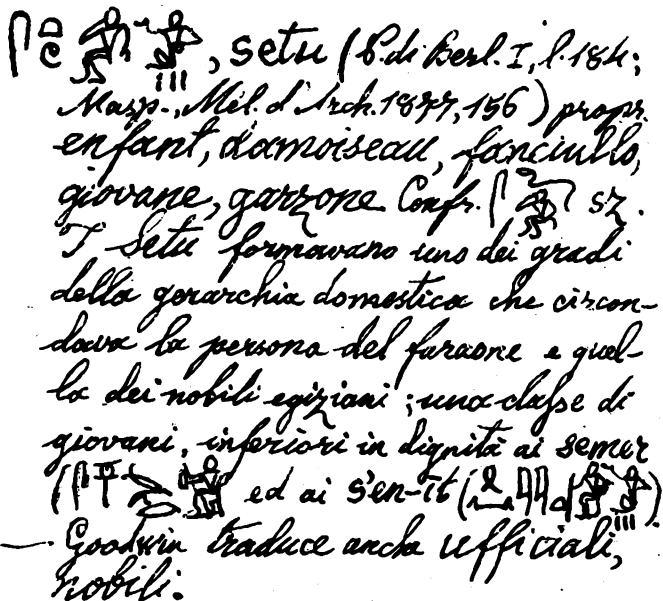 , setu (P. di Berl. I, l. 184;
Masp., Mél. d'Arch. 1877, 156) propr.
enfant, damoiseau, fanciullo,
giovane, garzone. Confr. sz.
I Setu formavano uno dei gradi
della gerarchia domestica che circon-
dava la persona del faraone e quel-
la dei nobili egiziani; una classe di
giovani, inferiori in dignità ai semer
( ed ai s'en-it ( ).
—. Goodwin traduce anche ufficiali,
nobili.